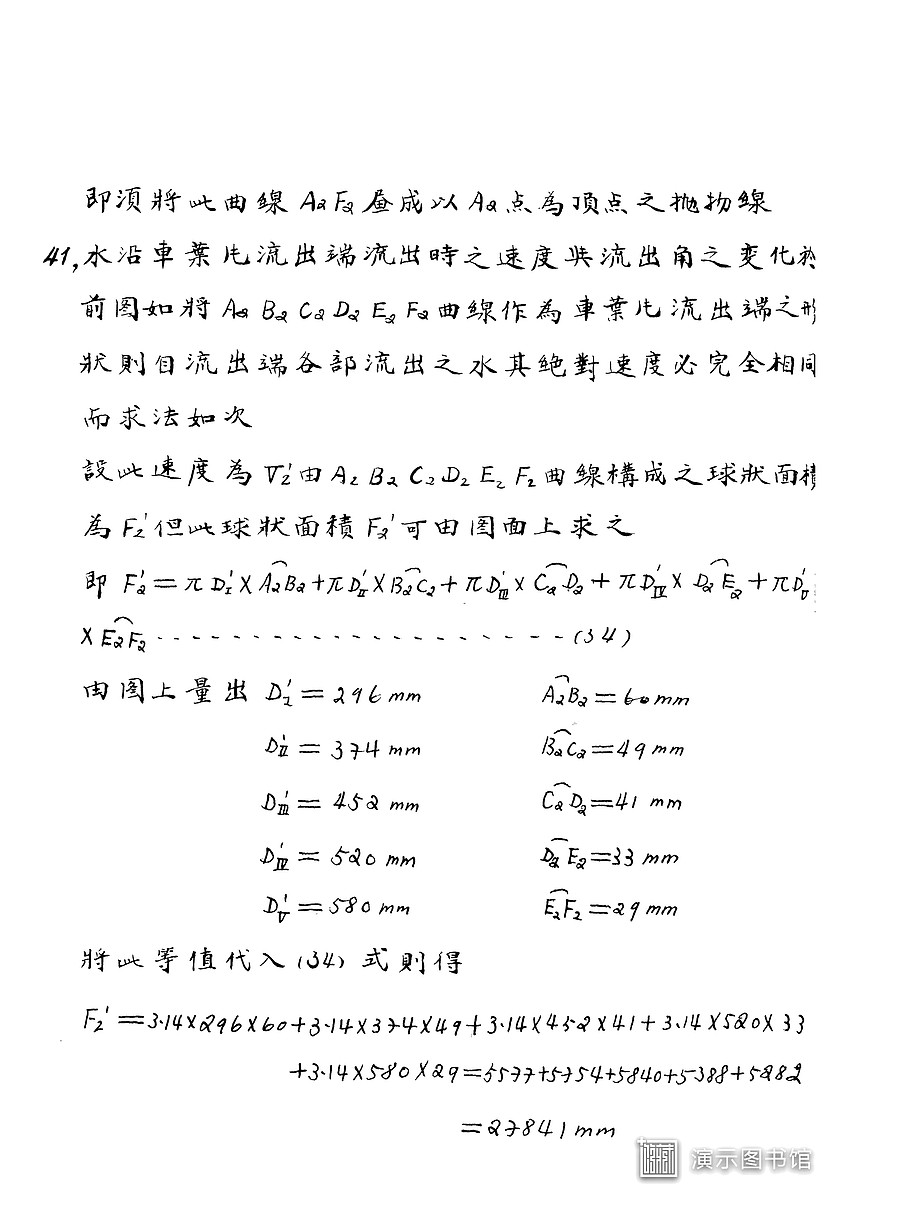 即須將此曲線 A₂F₂ 叠成以 A₂ 点為頂点之抛物線
41,水沿車葉片流出端流出時之速度與流出角之变化於
前图如將 A₂ B₂ C₂ D₂ E₂ F₂ 曲線作為車葉片流出端之形
狀則自流出端各部流出之水其絶對速度必完全相同
而求法如次
設此速度為 V₂′由 A₂ B₂ C₂ D₂ E₂ F₂ 曲線構成之球狀面積
為 F₂′但此球狀面積 F₂′可由图面上求之
即 F₂′=πD_I′×A₂B₂+πD_II′×B₂C₂+πD_III′×C₂D₂+πD_IV′×D₂E₂+πD_V′
×E₂F₂ - - - - - - - - - - - - - - - - - - - - (34)
由图上量出 D_I′=296mm A₂B₂=60mm
D_II′=374mm B₂C₂=49mm
D_III′=452mm C₂D₂=41mm
D_IV′=520mm D₂E₂=33mm
D_V′=580mm E₂F₂=29mm
將此等值代入(34)式則得
F₂′=3.14×296×60+3.14×374×49+3.14×452×41+3.14×520×33
+3.14×580×29=5577+5754+5840+5388+5282
=27841mm
演示图书馆